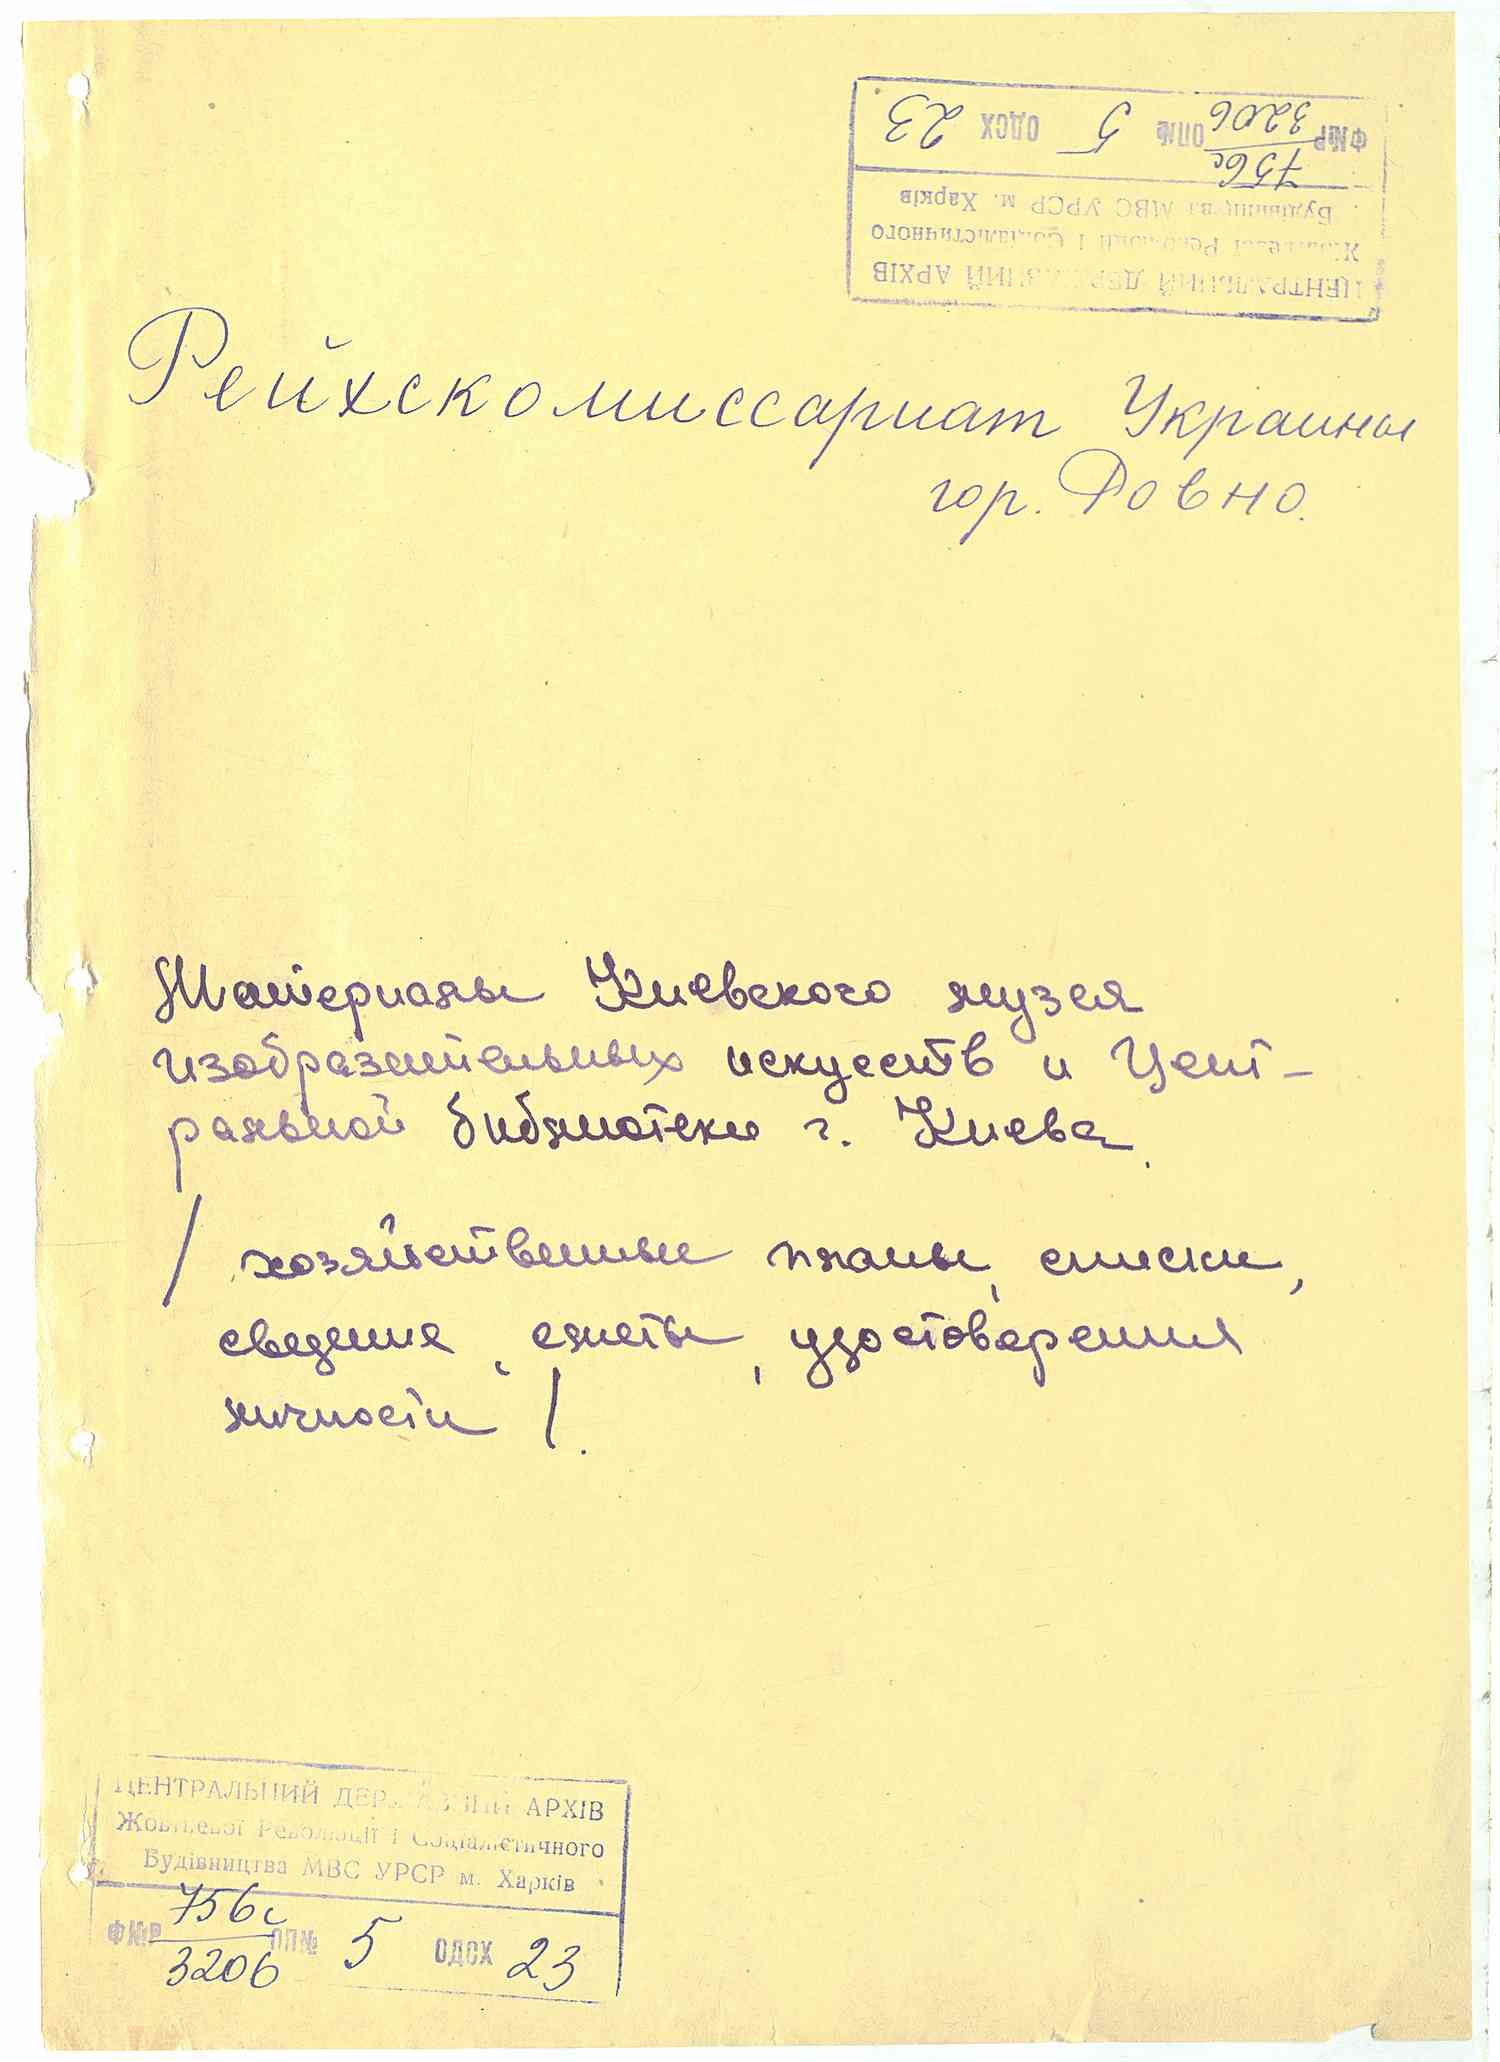 ЦЕНТРАЛЬНИЙ ДЕРЖАВНИЙ АРХІВ
Жовтневої Революції і Соціалістичного
Будівництва МВС УРСР м. Харків
Ф№Р 756с/3206 ОП№ 5 ОДСХ 23
Рейхскомиссариат Украины
гор. Ровно.
Материалы Киевского музея
изобразительных искусств и Цент-
ральной библиотеки г. Киева.
/ хозяйственные планы, списки,
сведения, сметы, удостоверения
личности /.
ЦЕНТРАЛЬНИЙ ДЕРЖАВНИЙ АРХІВ
Жовтневої Революції і Соціалістичного
Будівництва МВС УРСР м. Харків
Ф№Р 756с/3206 ОП№ 5 ОДСХ 23